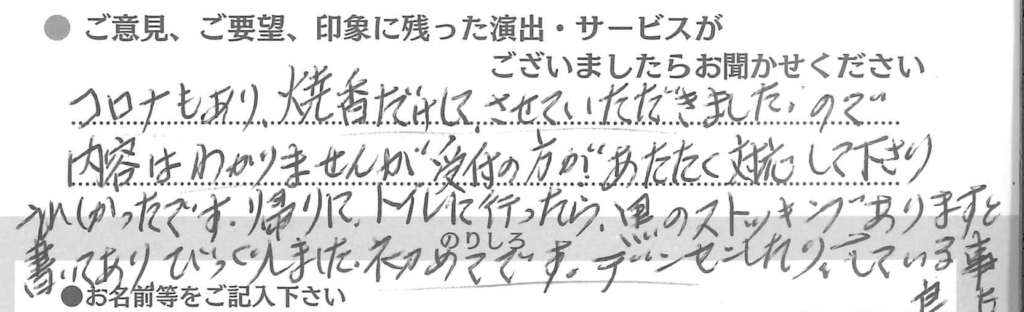 ● ご意見、ご要望、印象に残った演出・サービスが
ございましたらお聞かせください
コロナもあり、焼香だけして、させていただきました。ので
内容はわかりませんが受付の方があたたく対応して下さり
うれしかったです。帰りに、トイレに行ったら、黒のストッキングありますと
書いてありびっくりしました。初めてです。デンセンしたり、している事
のりしろ
●お名前等をご記入下さい